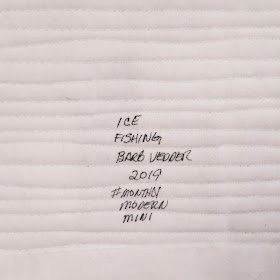 ICE
FISHING
BARB VEDDER
2019
#MONTHLY
MODERN
MINI